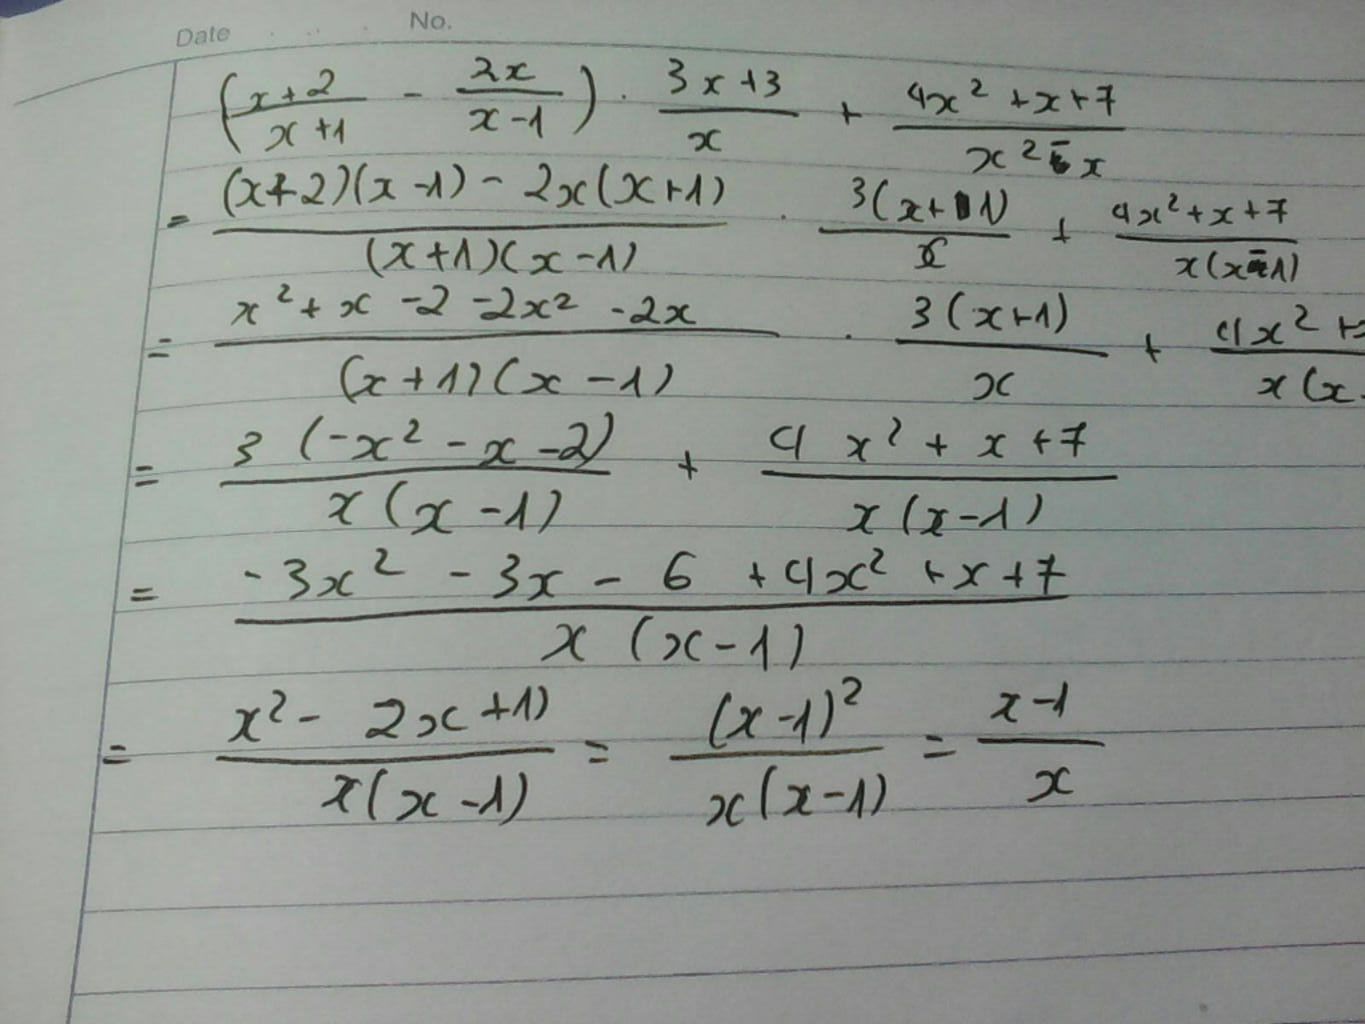 Date No.
(x+2/x+1 - 2x/x-1) . 3x+3/x + 4x²+x+7/x²-x
= (x+2)(x-1) - 2x(x+1)/(x+1)(x-1) . 3(x+1)/x + 4x²+x+7/x(x-1)
= x²+x-2-2x²-2x/(x+1)(x-1) . 3(x+1)/x + 4x²+/x(x
= 3(-x²-x-2)/x(x-1) + 4x²+x+7/x(x-1)
= -3x²-3x-6+4x²+x+7/x(x-1)
= x²-2x+1)/x(x-1) = (x-1)²/x(x-1) = x-1/x